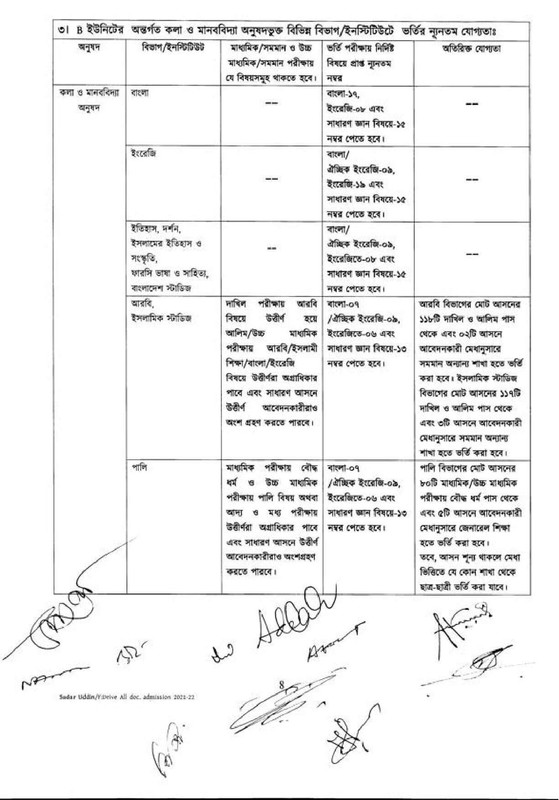 ৩। B ইউনিটের অন্তর্গত কলা ও মানববিদ্যা অনুষদভুক্ত বিভিন্ন বিভাগ/ইনস্টিটিউটে ভর্তির ন্যূনতম যোগ্যতাঃ
অনুষদ
বিভাগ/ইনস্টিটিউট
মাধ্যমিক/সমমান ও উচ্চ
মাধ্যমিক/সমমান পরীক্ষায়
যে বিষয়সমূহ থাকতে হবে।
ভর্তি পরীক্ষায় নির্দিষ্ট
বিষয়ে প্রাপ্ত ন্যূনতম
নম্বর
অতিরিক্ত যোগ্যতা
কলা ও মানববিদ্যা
অনুষদ
বাংলা
--
বাংলা-১৭,
ইংরেজি-০৮ এবং
সাধারণ জ্ঞান বিষয়ে-১৫
নম্বর পেতে হবে।
--
ইংরেজি
--
বাংলা/
ঐচ্ছিক ইংরেজি-০৯,
ইংরেজি-১৯ এবং
সাধারণ জ্ঞান বিষয়ে-১৫
নম্বর পেতে হবে।
--
ইতিহাস, দর্শন,
ইসলামের ইতিহাস ও
সংস্কৃতি,
ফারসি ভাষা ও সাহিত্য,
বাংলাদেশ স্টাডিজ
--
বাংলা/
ঐচ্ছিক ইংরেজি-০৯,
ইংরেজিতে-০৮ এবং
সাধারণ জ্ঞান বিষয়ে-১৫
নম্বর পেতে হবে।
--
আরবি,
ইসলামিক স্টাডিজ
দাখিল পরীক্ষায় আরবি
বিষয়ে উত্তীর্ণ হয়ে
আলিম/উচ্চ মাধ্যমিক
পরীক্ষায় আরবি/ইসলামী
শিক্ষা/বাংলা/ইংরেজি
বিষয়ে উত্তীর্ণরা অগ্রাধিকার
পাবে এবং সাধারণ আসনে
উত্তীর্ণ আবেদনকারীরাও
অংশ গ্রহণ করতে পারবে।
বাংলা-০৭
/ঐচ্ছিক ইংরেজি-০৯,
ইংরেজিতে-০৬ এবং
সাধারণ জ্ঞান বিষয়ে-১৩
নম্বর পেতে হবে।
আরবি বিভাগের মোট আসনের
১১৮টি দাখিল ও আলিম পাস
থেকে এবং ০২টি আসনে
আবেদনকারী মেধানুসারে
সমমান অন্যান্য শাখা হতে ভর্তি
করা হবে। ইসলামিক স্টাডিজ
বিভাগের মোট আসনের ১১৭টি
দাখিল ও আলিম পাস থেকে
এবং ৩টি আসনে আবেদনকারী
মেধানুসারে সমমান অন্যান্য
শাখা হতে ভর্তি করা হবে।
পালি
মাধ্যমিক পরীক্ষায় বৌদ্ধ
ধর্ম ও উচ্চ মাধ্যমিক
পরীক্ষায় পালি বিষয় অথবা
আদ্য ও মধ্য পরীক্ষায়
উত্তীর্ণরা অগ্রাধিকার পাবে
এবং সাধারণ আসনে উত্তীর্ণ
আবেদনকারীরাও অংশগ্রহণ
করতে পারবে।
বাংলা-০৭
/ঐচ্ছিক ইংরেজি-০৯,
ইংরেজিতে-০৬ এবং
সাধারণ জ্ঞান বিষয়ে-১৩
নম্বর পেতে হবে।
পালি বিভাগের মোট আসনের
৮০টি মাধ্যমিক/উচ্চ মাধ্যমিক
পরীক্ষায় বৌদ্ধ ধর্ম পাস থেকে
এবং ৫টি আসনে আবেদনকারী
মেধানুসারে জেনারেল শিক্ষা
হতে ভর্তি করা হবে।
তবে, আসন শূন্য থাকলে মেধা
ভিত্তিতে যে কোন শাখা থেকে
ছাত্র-ছাত্রী ভর্তি করা যাবে।
৪
Sadar Uddin/F:Drive All doc. admission 2021-22